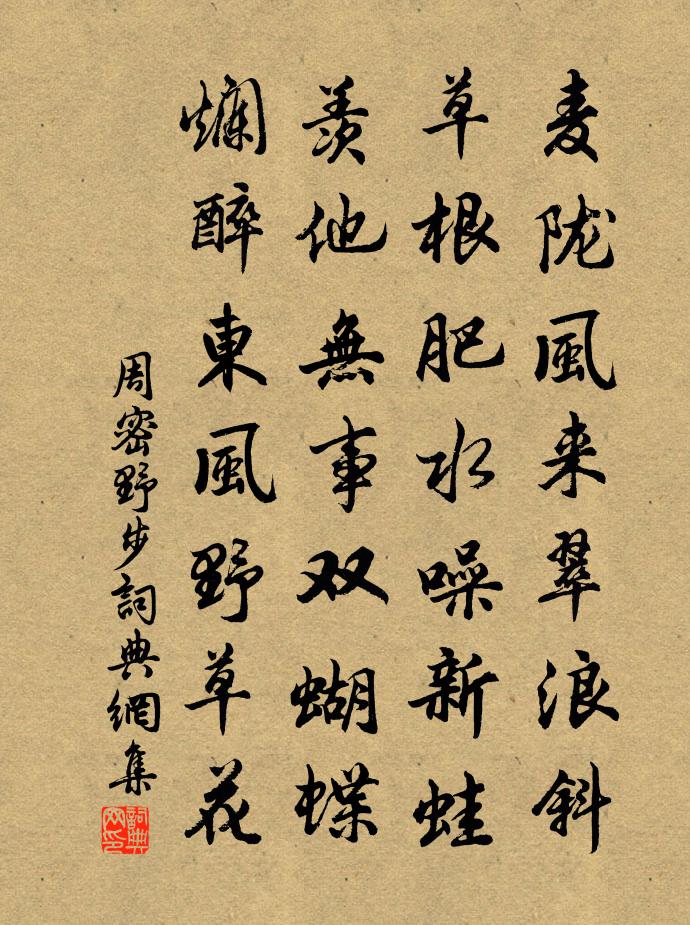 麦陇風来翠浪斜
草根肥水噪新蛙
羨他無事双蝴蝶
爛醉東風野草花
周密野步詞典網集
詞典網印